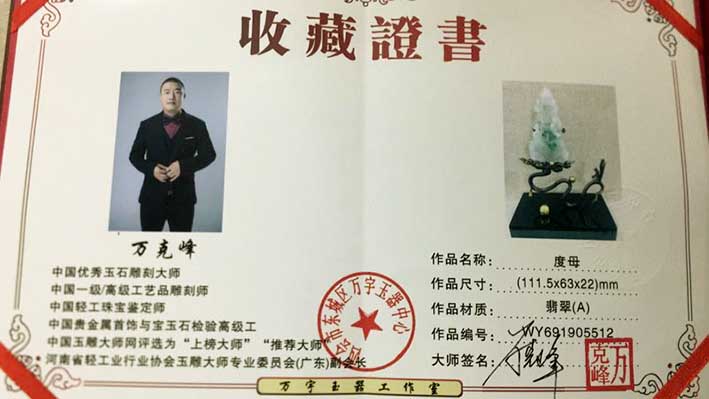 收藏證書
万克峰
中国优秀玉石雕刻大师
中国一级/高级工艺品雕刻师
中国轻工珠宝鉴定师
中国贵金属首饰与宝玉石检验高级工
中国玉雕大师网评选为“上榜大师”“推荐大师”
河南省轻工业行业协会玉雕大师专业委员会(广东)副会长
作品名称： 度母
作品尺寸： (111.5x63x22)mm
作品材质： 翡翠(A)
作品编号： WY691905512
大师签名：
四会市东城区万字玉器中心
万克峰
万字玉器工作室